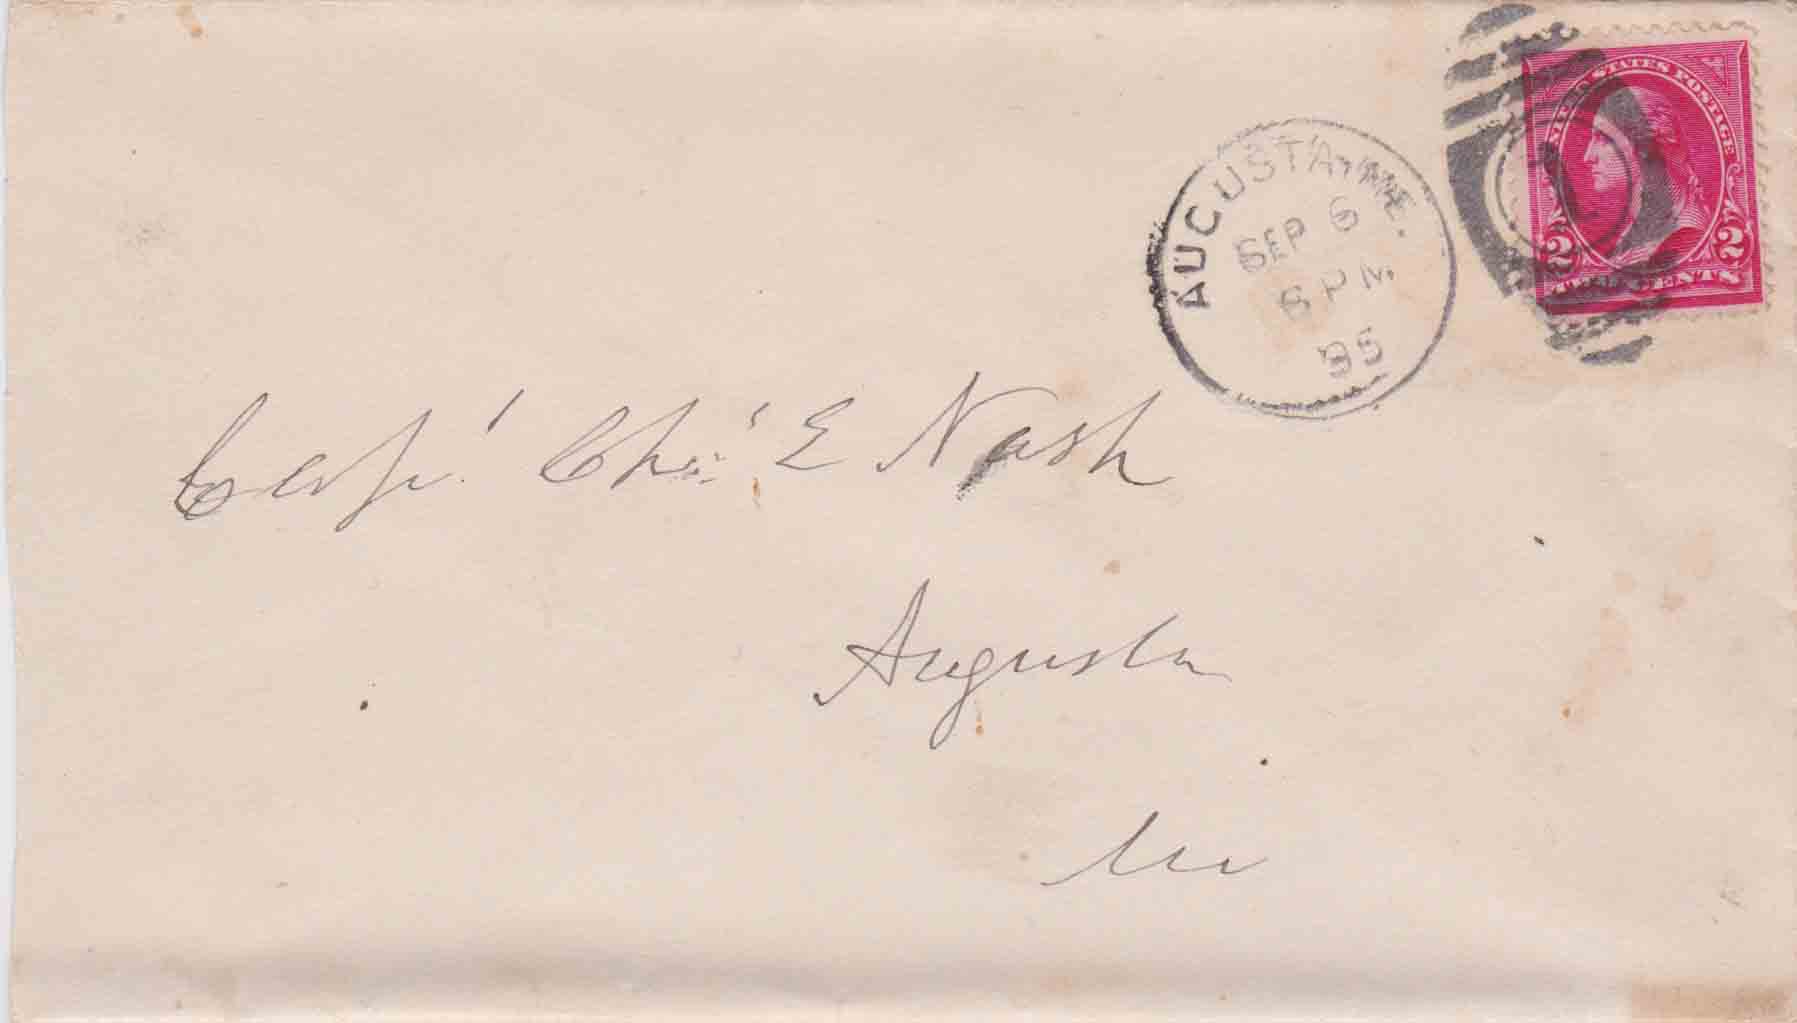 UNITED STATES POSTAGE
2 2
TWO CENTS
AUGUSTA, ME.
SEP 6
6 PM
95
Capt. Chas. E Nash
Augusta
Me